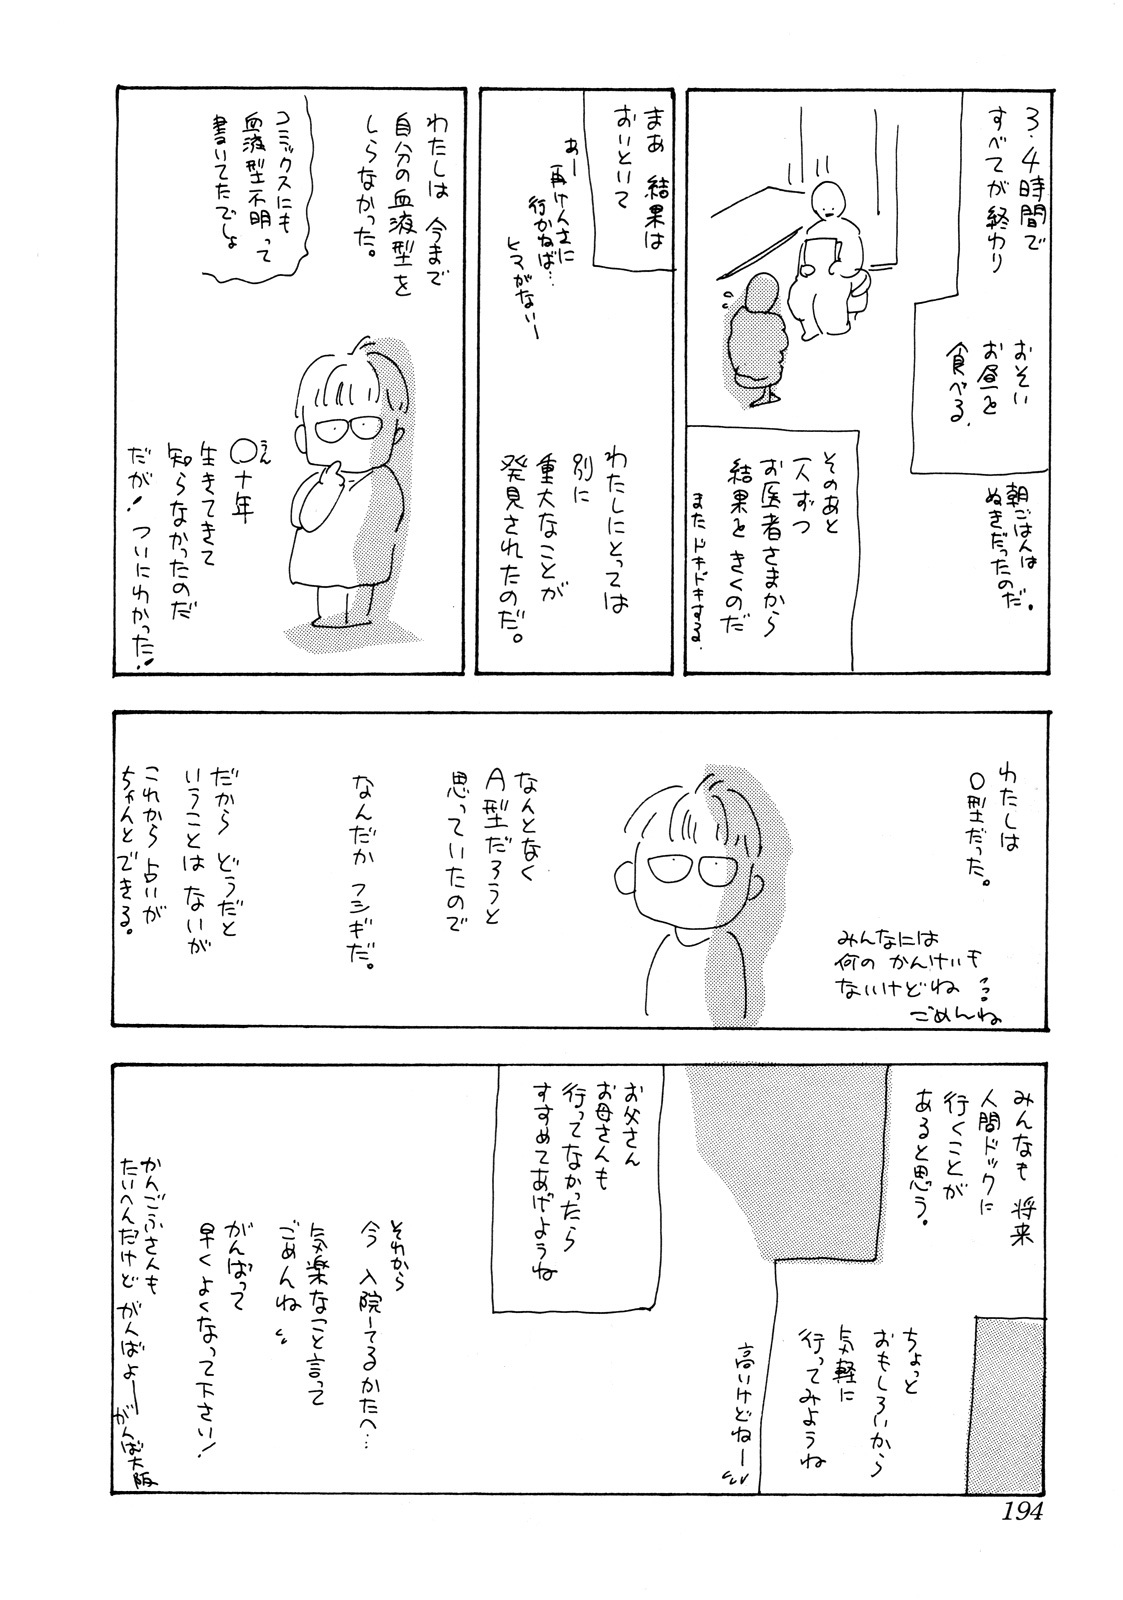 3.4時間で
すべてが終わり
おそい
お昼を
食べる.
朝ごはんは
ぬきだったのだ。
そのあと
一人ずつ
お医者さまから
結果を きくのだ
またドキドキする.
まあ 結果は
おいといて
あー
再けんさに
行かねば…
ヒマがないー
わたしにとっては
別に
重大なことが
発見されたのだ。
わたしは 今まで
自分の血液型を
しらなかった。
コミックスにも
血液型不明って
書いてたでしょ
〇十年
うん
生きてきて
知らなかったのだ
だが! ついにわかった!
わたしは
O型だった。
みんなには
何の かんけいも
ないけどね
ごめんね
なんとなく
A型だろうと
思っていたので
なんだか フシギだ。
だから どうだと
いうことは ないが
これから 占いが
ちゃんとできる。
みんなも 将来
人間ドックに
行くことが
あると思う。
ちょっと
おもしろいから
気軽に
行ってみようね
高いけどねー
お父さん
お母さんも
行ってなかったら
すすめてあげようね
それから
今 入院してるかたへ…
気楽なこと言って
ごめんね
がんばって
早くよくなって下さい!
かんごふさんも
たいへんだけど がんばよー
がんば大阪
194